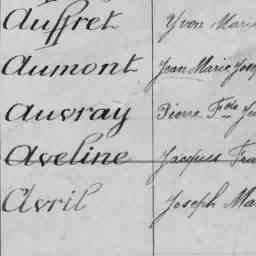 Auffret Yvon Marie
Aumont Jean Marie Jose
Auvray Pierre Fois
Aveline Jacques
Avril Joseph Ma